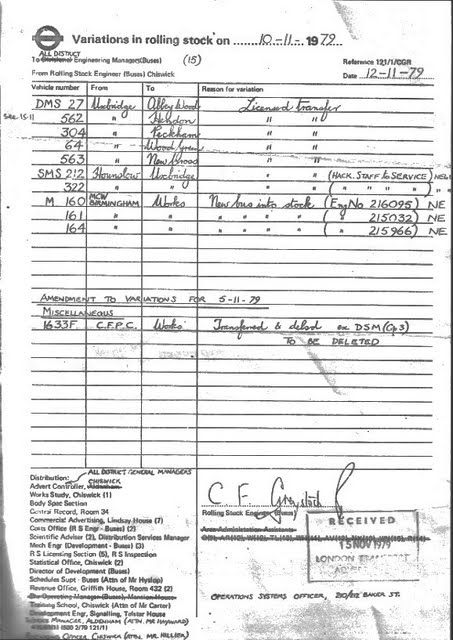 Variations in rolling stock on 10-11-1979
ALL DISTRICT
To Divisional Engineering Managers (Buses) (15)
Reference 121/1/CGR
From Rolling Stock Engineer (Buses) Chiswick
Date 12-11-79
Vehicle number From To Reason for variation
DMS 27 Uxbridge Abbey Wood Licensed transfer
See 15-11 562 " Hendon " "
304 " Peckham " "
64 " Wood Green " "
563 " New Cross " "
SMS 212 Hounslow Uxbridge (HACK. STAFF to SERVICE)
322 " " ( " " " " )
M 160 MCW BIRMINGHAM Works New bus into stock (Eng No 216095) NE
161 " " " " " " ( " 215032) NE
164 " " " " " " ( " 215966) NE
AMENDMENT TO VARIATIONS FOR 5-11-79
MISCELLANEOUS
1633F C.F.P.C. Works Transferred & delsd ex DSM (Gp 3)
TO BE DELETED
Distribution: ALL DISTRICT GENERAL MANAGERS
Advert Controller, CHISWICK
Works Study, Chiswick (1)
Body Spec Section
Central Record, Room 34
Commercial Advertising, Lindsay House (7)
Costs Office (R S Engr - Buses) (2)
Scientific Adviser (2), Distribution Services Manager
Mech Engr (Development - Buses) (3)
R S Licensing Section (5), R S Inspection
Statistical Office, Chiswick (2)
Director of Development (Buses)
Schedules Supt - Buses (Attn of Mr Hyslop)
Revenue Office, Griffith House, Room 432 (2)
Training School, Chiswick (Attn of Mr Carter)
Development Engr, Signalling, Telstar House
MANAGER, ALDENHAM (ATTN. MR HAYWARD)
OFFICER, CHISWICK (ATTN. MR HILLIER)
Rolling Stock Engineer (Buses)
RECEIVED
15 NOV 1979
LONDON TRANSPORT
OPERATIONS SYSTEMS OFFICER, 210/212 BAKER ST.